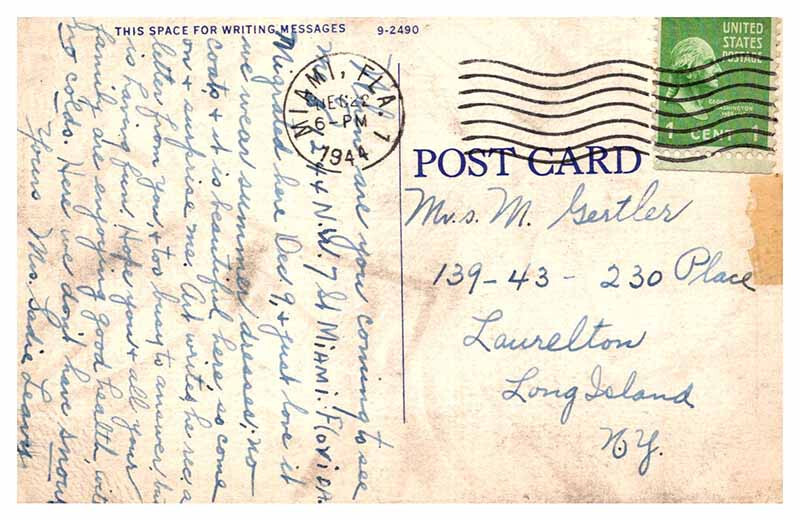 THIS SPACE FOR WRITING MESSAGES 9-2490
When are you coming to see
me. 44 N.W. 7 St Miami. Florida.
Migrated here Dec 9, & just love it
we wear summer dresses, no
coats, & it is beautiful here so come
on & surprise me. Art writes he rec. a
letter from you, & too busy to answer, but
is having fun. Hope you & all your
family are enjoying good health with
no colds. Here we don't have snow
Yours Mrs. Sadie
MIAMI, FLA. 1
22
6-PM
1944
UNITED
STATES
POSTAGE
GEORGE
WASHINGTON
1 CENT 1
POST CARD
Mrs. M. Gertler
139-43 - 230 Place
Laurelton
Long Island
N.Y.